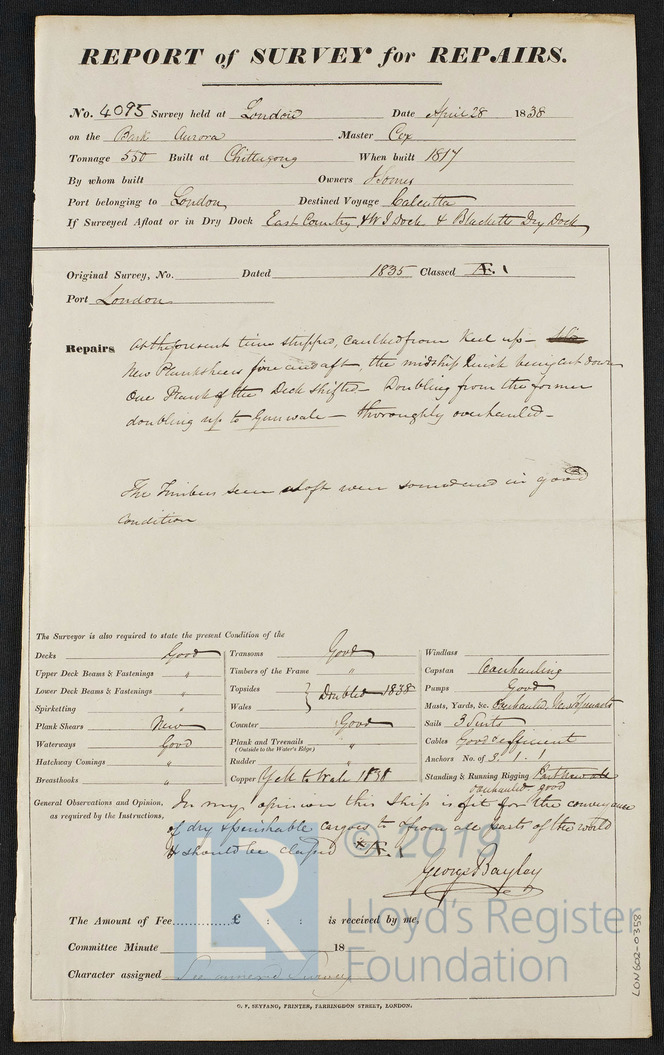 REPORT of SURVEY for REPAIRS.
No. 4095 Survey held at London Date April 28 1838
on the Bark Aurora Master Cox
Tonnage 550 Built at Chittagong When built 1817
By whom built Owners
Port belonging to London Destined Voyage Calcutta
If Surveyed Afloat or in Dry Dock East Country & W I Dock & Blacketts Dry Dock
Original Survey, No. Dated 1835 Classed Æ. 1
Port London
Repairs At the present time stripped, caulked from Keel up -
New Planksheers fore and aft, the midship being cut down
One Plank of the Deck shifted - Doubling from the former
doubling up to Gunwale - thoroughly overhauled -
The Timbers seen aloft were sound and in good
condition
The Surveyor is also required to state the present Condition of the
Decks Good
Upper Deck Beams & Fastenings "
Lower Deck Beams & Fastenings "
Spirketting "
Plank Shears New
Waterways Good
Hatchway Comings "
Breasthooks "
Transoms Good
Timbers of the Frame "
Topsides } Doubled 1838
Wales
Counter Good
Plank and Treenails "
(Outside to the Water's Edge)
Rudder "
Copper Y M to Wale 1838
Windlass
Capstan Overhauling
Pumps Good
Masts, Yards, &c. Overhauled, New
Sails 3 Suits
Cables Good & efficient
Anchors No. of 3 . 1 . 1
Standing & Running Rigging Part New
overhauled good
General Observations and Opinion, In my opinion this Ship is fit for the conveyance
as required by the Instructions,
of dry & perishable cargoes to & from all parts of the world
& should be classed * Æ 1
George Bayley
The Amount of Fee..............£ : : is received by me,
Committee Minute 18
Character assigned See annexed Survey
G. F. SEYFANG, PRINTER, FARRINGDON STREET, LONDON.
LON602-0358
© 2019
LR
Lloyd's Register
Foundation